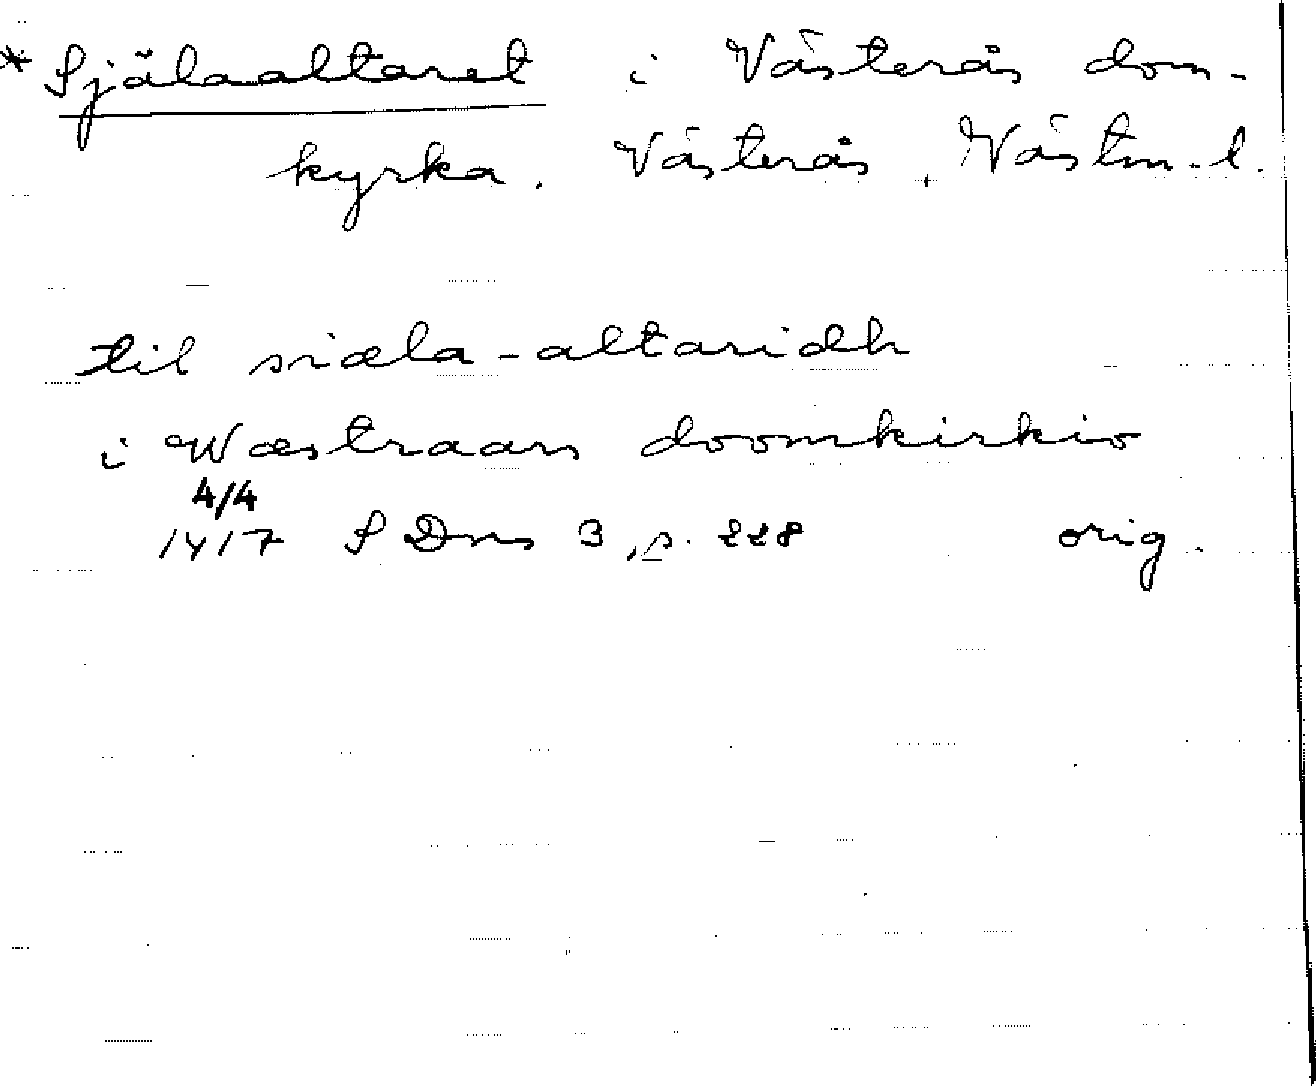 * Själaaltaret i Västerås dom-
kyrka. Västerås, Västm.l.
til siæla-altaridh
i Wæstraars doomkirkio
4/4
1417 SDns 3, p. 228 orig.